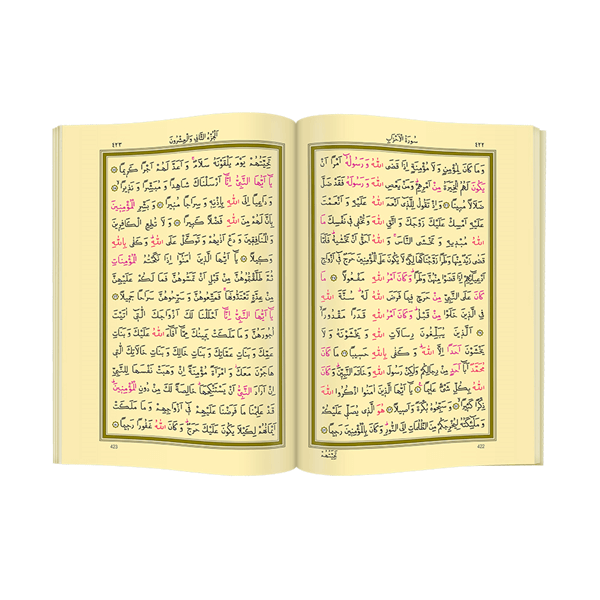 سُورَةُ الْاَحْزَابِ ٤٢٢
وَمَا كَانَ لِمُؤْمِنٍ وَلَا مُؤْمِنَةٍ اِذَا قَضَى اللّٰهُ وَرَسُولُهُٓ اَمْرًا اَنْ
يَكُونَ لَهُمُ الْخِيَرَةُ مِنْ اَمْرِهِمْ وَمَنْ يَعْصِ اللّٰهَ وَرَسُولَهُ فَقَدْ ضَلَّ
ضَلَالًا مُبِينًا وَاِذْ تَقُولُ لِلَّذِٓي اَنْعَمَ اللّٰهُ عَلَيْهِ وَاَنْعَمْتَ
عَلَيْهِ اَمْسِكْ عَلَيْكَ زَوْجَكَ وَاتَّقِ اللّٰهَ وَتُخْفِي فِي نَفْسِكَ مَا
اللّٰهُ مُبْدِيهِ وَتَخْشَى النَّاسَ وَاللّٰهُ اَحَقُّ اَنْ تَخْشٰيهُ فَلَمَّا
قَضٰى زَيْدٌ مِنْهَا وَطَرًا زَوَّجْنَاكَهَا لِكَيْ لَا يَكُونَ عَلَى الْمُؤْمِنِينَ حَرَجٌ فِٓي اَزْوَاجِ
اَدْعِيَٓائِهِمْ اِذَا قَضَوْا مِنْهُنَّ وَطَرًا وَكَانَ اَمْرُ اللّٰهِ مَفْعُولًا مَا
كَانَ عَلَى النَّبِيِّ مِنْ حَرَجٍ فِيمَا فَرَضَ اللّٰهُ لَهُ سُنَّةَ اللّٰهِ
فِي الَّذِينَ خَلَوْا مِنْ قَبْلُ وَكَانَ اَمْرُ اللّٰهِ قَدَرًا مَقْدُورًا
اَلَّذِينَ يُبَلِّغُونَ رِسَالَاتِ اللّٰهِ وَيَخْشَوْنَهُ وَلَا
يَخْشَوْنَ اَحَدًا اِلَّا اللّٰهَ وَكَفٰى بِاللّٰهِ حَسِيبًا مَا كَانَ
مُحَمَّدٌ اَبَٓا اَحَدٍ مِنْ رِجَالِكُمْ وَلٰكِنْ رَسُولَ اللّٰهِ وَخَاتَمَ النَّبِيّٖنَ وَكَانَ
اللّٰهُ بِكُلِّ شَيْءٍ عَلِيمًا يَٓا اَيُّهَا الَّذِينَ اٰمَنُوا اذْكُرُوا اللّٰهَ
ذِكْرًا كَثِيرًا وَسَبِّحُوهُ بُكْرَةً وَاَصِيلًا هُوَ الَّذِي يُصَلِّي عَلَيْكُمْ
وَمَلٰٓئِكَتُهُ لِيُخْرِجَكُمْ مِنَ الظُّلُمَاتِ اِلَى النُّورِ وَكَانَ بِالْمُؤْمِنِينَ رَحِيمًا
422
تَحِيَّتُهُمْ
اَلْجُزْءُ الثَّانِي وَالْعِشْرُونَ ٤٢٣
تَحِيَّتُهُمْ يَوْمَ يَلْقَوْنَهُ سَلَامٌ وَاَعَدَّ لَهُمْ اَجْرًا كَرِيمًا
يَٓا اَيُّهَا النَّبِيُّ اِنَّٓا اَرْسَلْنَاكَ شَاهِدًا وَمُبَشِّرًا وَنَذِيرًا
وَدَاعِيًا اِلَى اللّٰهِ بِاِذْنِهِ وَسِرَاجًا مُنِيرًا وَبَشِّرِ الْمُؤْمِنِينَ
بِاَنَّ لَهُمْ مِنَ اللّٰهِ فَضْلًا كَبِيرًا وَلَا تُطِعِ الْكَافِرِينَ
وَالْمُنَافِقِينَ وَدَعْ اَذٰيهُمْ وَتَوَكَّلْ عَلَى اللّٰهِ وَكَفٰى بِاللّٰهِ
وَكِيلًا يَٓا اَيُّهَا الَّذِينَ اٰمَنُٓوا اِذَا نَكَحْتُمُ الْمُؤْمِنَاتِ
ثُمَّ طَلَّقْتُمُوهُنَّ مِنْ قَبْلِ اَنْ تَمَسُّوهُنَّ فَمَا لَكُمْ عَلَيْهِنَّ
مِنْ عِدَّةٍ تَعْتَدُّونَهَا فَمَتِّعُوهُنَّ وَسَرِّحُوهُنَّ سَرَاحًا جَمِيلًا
يَٓا اَيُّهَا النَّبِيُّ اِنَّٓا اَحْلَلْنَا لَكَ اَزْوَاجَكَ الّٰتِٓي اٰتَيْتَ
اُجُورَهُنَّ وَمَا مَلَكَتْ يَمِينُكَ مِمَّٓا اَفَٓاءَ اللّٰهُ عَلَيْكَ وَبَنَاتِ
عَمِّكَ وَبَنَاتِ عَمَّاتِكَ وَبَنَاتِ خَالِكَ وَبَنَاتِ خَالَاتِكَ الّٰتِي
هَاجَرْنَ مَعَكَ وَامْرَاَةً مُؤْمِنَةً اِنْ وَهَبَتْ نَفْسَهَا لِلنَّبِيِّ
اِنْ اَرَادَ النَّبِيُّ اَنْ يَسْتَنْكِحَهَا خَالِصَةً لَكَ مِنْ دُونِ الْمُؤْمِنِينَ
قَدْ عَلِمْنَا مَا فَرَضْنَا عَلَيْهِمْ فِٓي اَزْوَاجِهِمْ وَمَا مَلَكَتْ
اَيْمَانُهُمْ لِكَيْلَا يَكُونَ عَلَيْكَ حَرَجٌ وَكَانَ اللّٰهُ غَفُورًا رَحِيمًا
423